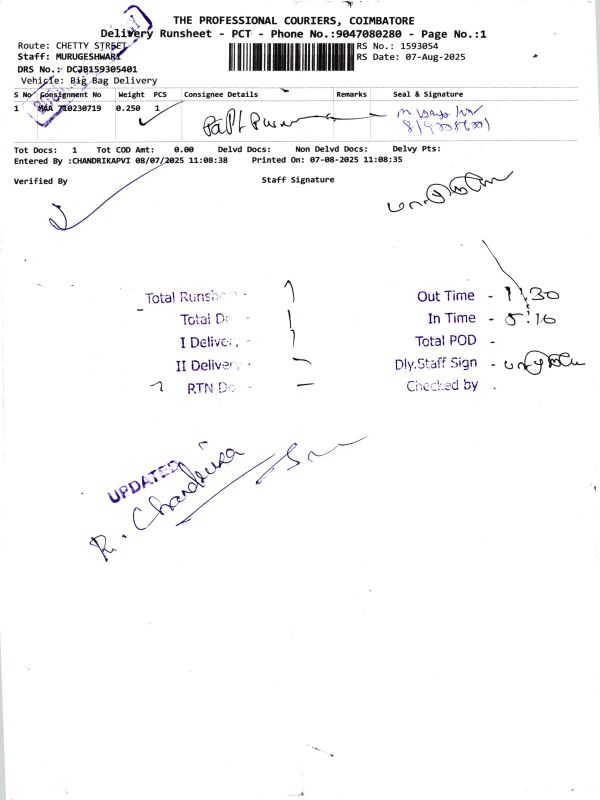 THE PROFESSIONAL COURIERS, COIMBATORE
Delivery Runsheet - PCT - Phone No.:9047080280 - Page No.:1
Route: CHETTY STREET
RS No.: 1593054
Staff: MURUGESHWARI
RS Date: 07-Aug-2025
DRS No.: DCJB159305401
Vehicle: Big Bag Delivery
S No Consignment No Weight PCS Consignee Details Remarks Seal & Signature
1 MAA 710230719 0.250 1
Tot Docs: 1 Tot COD Amt: 0.00 Delvd Docs: Non Delvd Docs: Delvy Pts:
Entered By :CHANDRIKAPVI 08/07/2025 11:08:38 Printed On: 07-08-2025 11:08:35
Verified By Staff Signature
Total Runsh - 1
Out Time - 11:30
Total D - 1
In Time - 5:10
I Deliver - 1
Total POD -
II Deliver -
Dly.Staff Sign -
RTN Do - –
Checked by
UPDATED
R. Chandrika